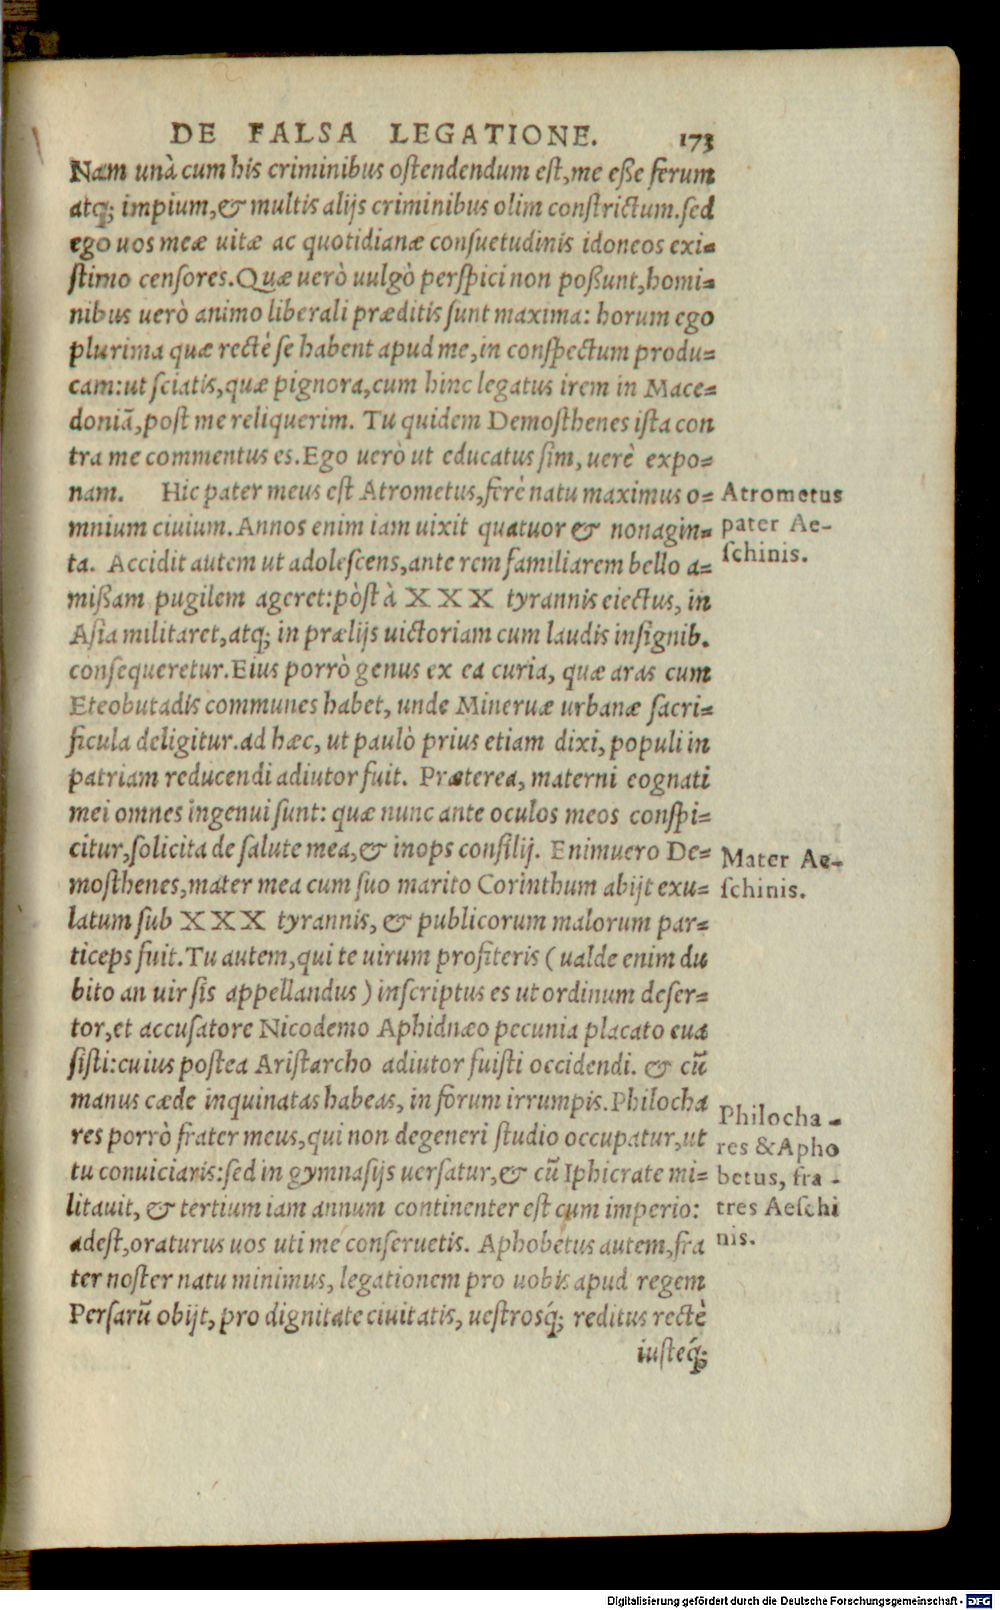 DE FALSA LEGATIONE. 173
Nam unà cum his criminibus ostendendum est, me eße ferum
atq; impium, & multis alijs criminibus olim constrictum. sed
ego uos meæ uitæ ac quotidianæ consuetudinis idoneos exi=
stimo censores. Quæ uerò uulgò perspici non poßunt, homi=
nibus uerò animo liberali præditis sunt maxima: horum ego
plurima quæ rectè se habent apud me, in conspectum produ=
cam: ut sciatis, quæ pignora, cum hinc legatus irem in Mace=
doniã, post me reliquerim. Tu quidem Demosthenes ista con
tra me commentus es. Ego uerò ut educatus sim, uerè expo=
nam. Hic pater meus est Atrometus, ferè natu maximus o=
mnium ciuium. Annos enim iam uixit quatuor & nonagin=
ta. Accidit autem ut adolescens, ante rem familiarem bello a=
mißam pugilem ageret: pòst à XXX tyrannis eiectus, in
Asia militaret, atq; in prælijs uictoriam cum laudis insignib.
consequeretur. Eius porrò genus ex ea curia, quæ aras cum
Eteobutadis communes habet, unde Mineruæ urbanæ sacri=
ficula deligitur. ad hæc, ut paulò prius etiam dixi, populi in
patriam reducendi adiutor fuit. Præterea, materni eognati
mei omnes ingenui sunt: quæ nunc ante oculos meos conspi=
citur, solicita de salute mea, & inops consilij. Enimuero De=
mosthenes, mater mea cum suo marito Corinthum abijt exu=
latum sub XXX tyrannis, & publicorum malorum par=
ticeps fuit. Tu autem, qui te uirum profiteris (ualde enim du
bito an uir sis appellandus) inscriptus es ut ordinum deser=
tor, et accusatore Nicodemo Aphidnæo pecunia placato eua
sisti: cuius postea Aristarcho adiutor fuisti occidendi. & cũ
manus cæde inquinatas habeas, in forum irrumpis. Philocha
res porrò frater meus, qui non degeneri studio occupatur, ut
tu conuiciaris: sed in gymnasijs uersatur, & cũ Iphicrate mi=
litauit, & tertium iam annum continenter est cum imperio:
adest, oraturus uos uti me conseruetis. Aphobetus autem, fra
ter noster natu minimus, legationem pro uobis apud regem
Persarũ obijt, pro dignitate ciuitatis, uestrosq́; reditus rectè
iusteq́;
Atrometus
pater Ae-
schinis.
Mater Ae-
schinis.
Philocha-
res & Apho
betus, fra-
tres Aeschi
nis.
Digitalisierung gefördert durch die Deutsche Forschungsgemeinschaft - DFG